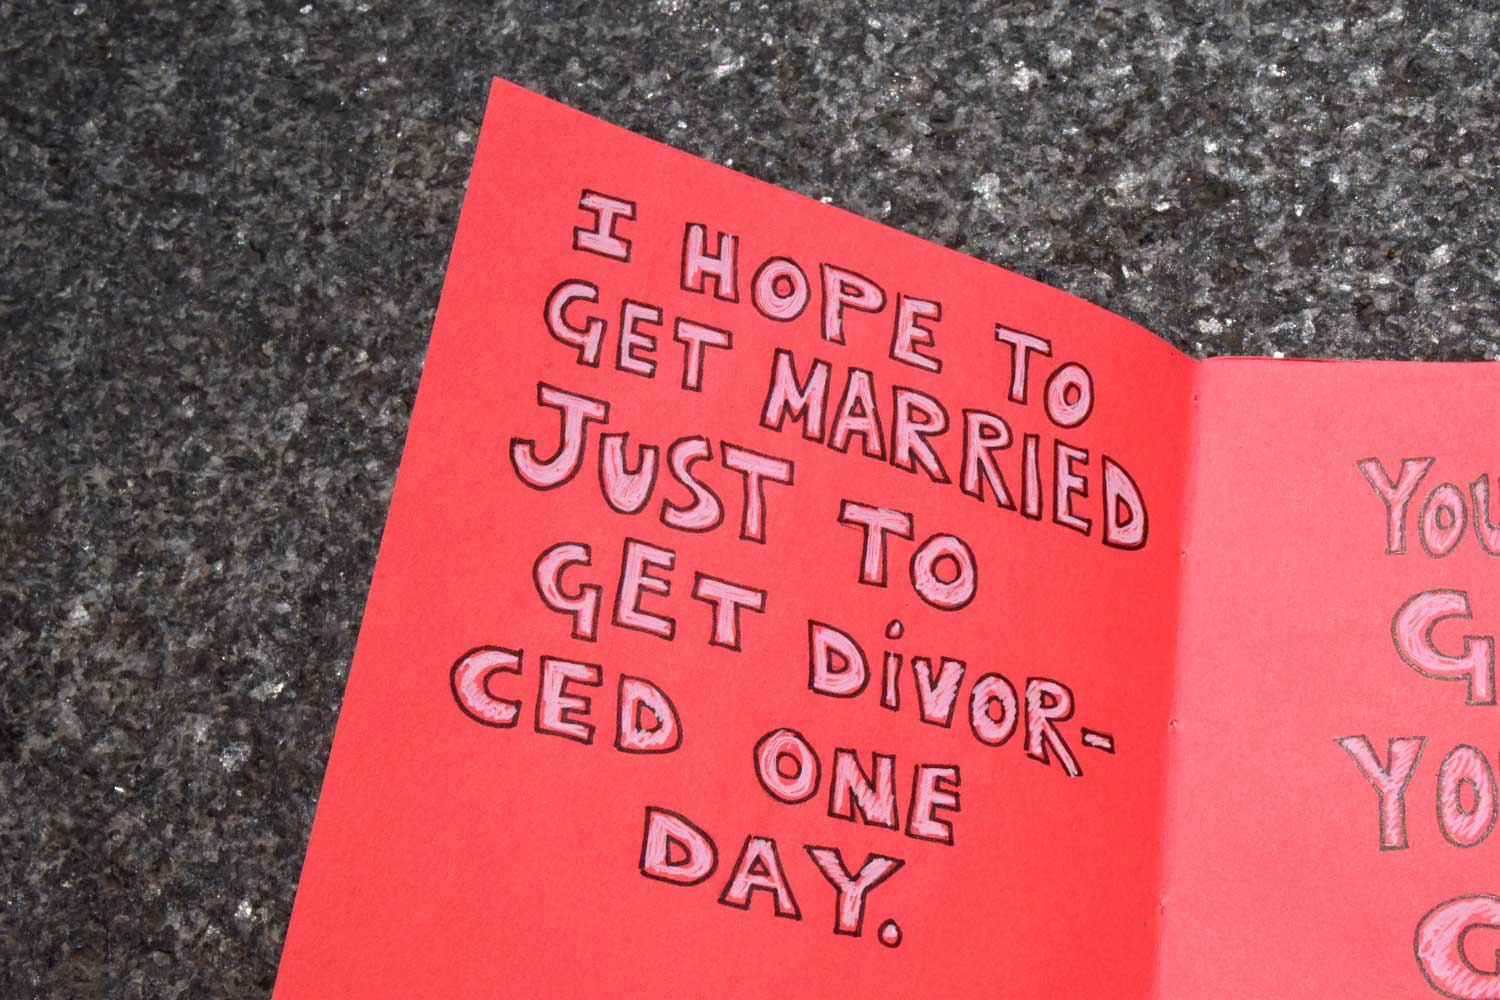 I HOPE TO
GET MARRIED
JUST TO
GET DiVOR-
CED ONE
DAY.